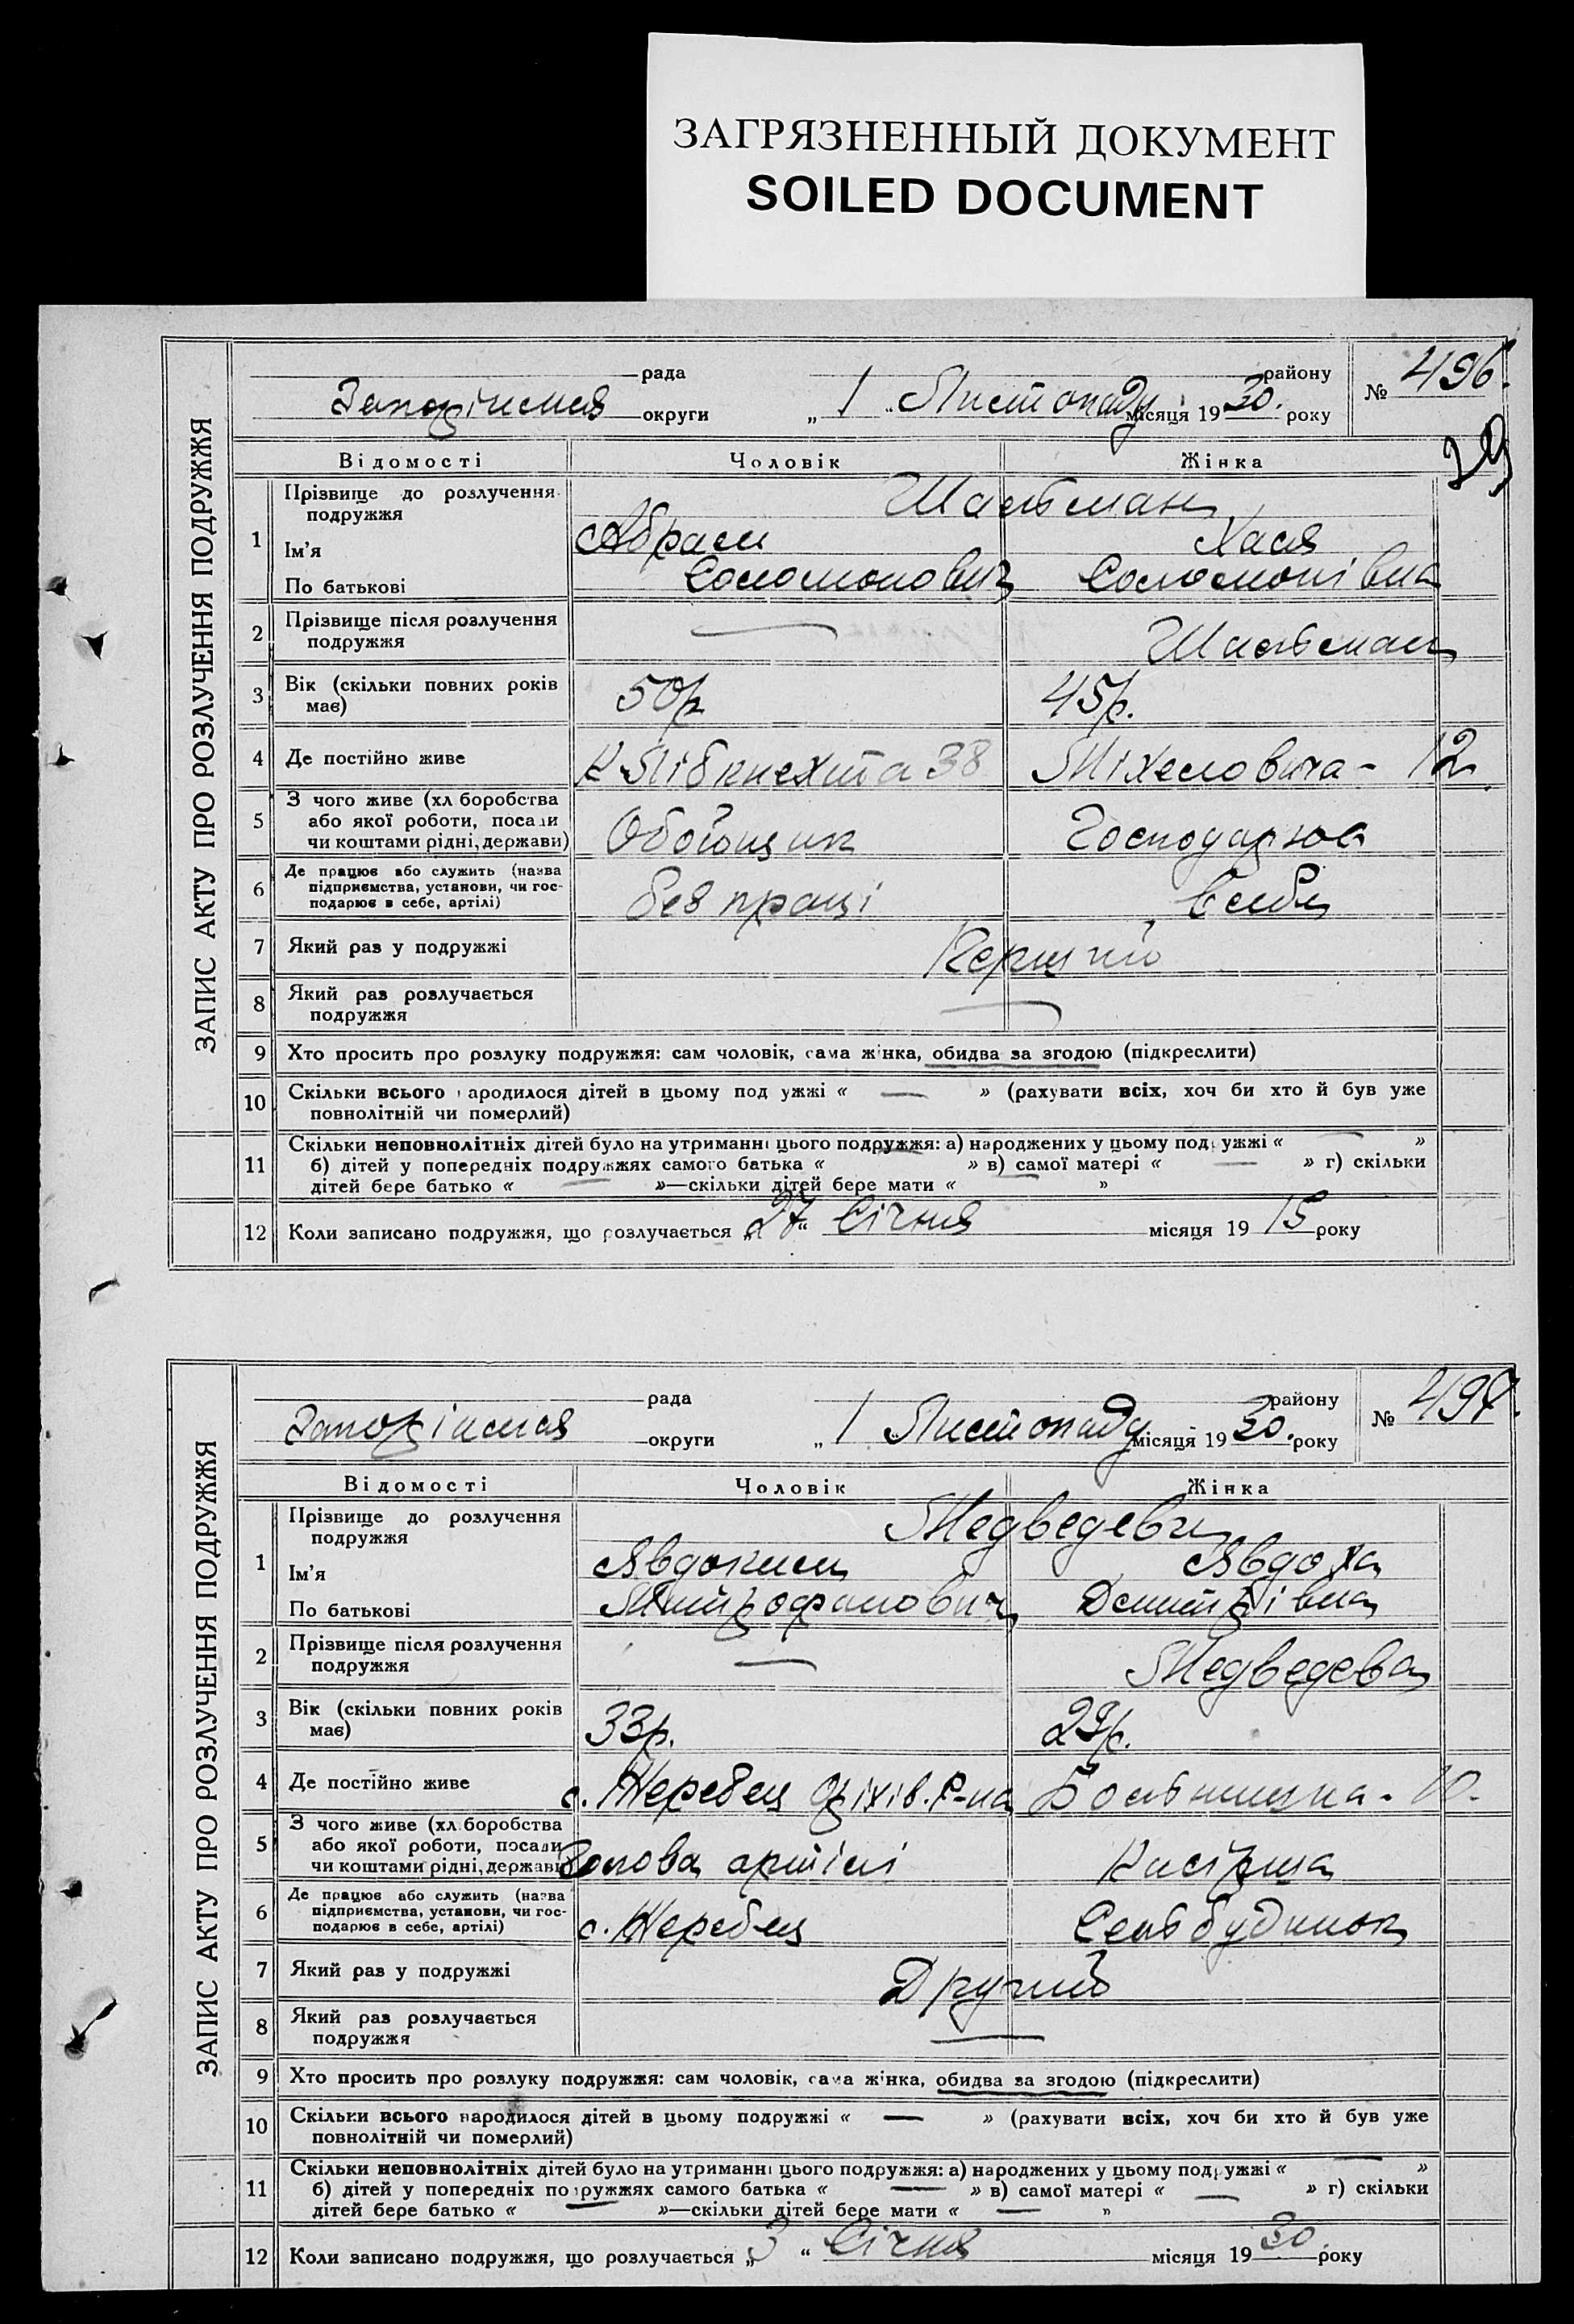 ЗАГРЯЗНЕННЫЙ ДОКУМЕНТ
SOILED DOCUMENT
ЗАПИС АКТУ ПРО РОЗЛУЧЕННЯ ПОДРУЖЖЯ
рада району № 496.
округи „ 1 „ Листопаду місяця 1930. року
29
Відомості Чоловік Жінка
1 Прізвище до розлучення подружжя
Ім'я Абрам Хася
По батькові Соломонович Соломонівна
2 Прізвище після розлучення
подружжя —
3 Вік (скільки повних років 50р 45р.
має)
4 Де постійно живе К Лібкнехта 38 Міхеловича - 12
5 З чого живе (хл боробства
або якої роботи, посади
чи коштами рідні, держави) Обойщик Господарює
6 Де працює або служить (назва
підприємства, установи, чи гос-
подарює в себе, артілі) без праці в себе
7 Який раз у подружжі Перший
8 Який раз розлучається
подружжя —
9 Хто просить про розлуку подружжя: сам чоловік, сама жінка, обидва за згодою (підкреслити)
10 Скільки всього народилося дітей в цьому подружжі « — » (рахувати всіх, хоч би хто й був уже
повнолітній чи померлий)
11 Скільки неповнолітніх дітей було на утриманні цього подружжя: а) народжених у цьому подружжі « — »
б) дітей у попередніх подружжях самого батька « » в) самої матері « — » г) скільки
дітей бере батько « — »—скільки дітей бере мати « »
12 Коли записано подружжя, що розлучається „27“ Січня місяця 1915 року
ЗАПИС АКТУ ПРО РОЗЛУЧЕННЯ ПОДРУЖЖЯ
рада району № 497.
округи „ 1 „ Листопаду місяця 1930. року
Відомості Чоловік Жінка
1 Прізвище до розлучення Медведеви
подружжя
Ім'я Явдоким Явдоха
По батькові Митрофанович Дмитрівна
2 Прізвище після розлучення
подружжя — Медведева
3 Вік (скільки повних років 33р. 29р.
має)
4 Де постійно живе с. Жеребец Оріхів. Р-на Больнична - 10.
5 З чого живе (хл.боробства
або якої роботи, посади
чи коштами рідні, держави) Голова артілі Касірша
6 Де працює або служить (назва
підприємства, установи, чи гос-
подарює в себе, артілі) с. Жеребец Сельбудинок
7 Який раз у подружжі Другий
8 Який раз розлучається
подружжя —
9 Хто просить про розлуку подружжя: сам чоловік, сама жінка, обидва за згодою (підкреслити)
10 Скільки всього народилося дітей в цьому подружжі « — » (рахувати всіх, хоч би хто й був уже
повнолітній чи померлий)
11 Скільки неповнолітніх дітей було на утриманні цього подружжя: а) народжених у цьому подружжі « — »
б) дітей у попередніх подружжях самого батька « — » в) самої матері « — » г) скільки
дітей бере батько « — »—скільки дітей бере мати « — »
12 Коли записано подружжя, що розлучається „3“ Січня місяця 1930 року